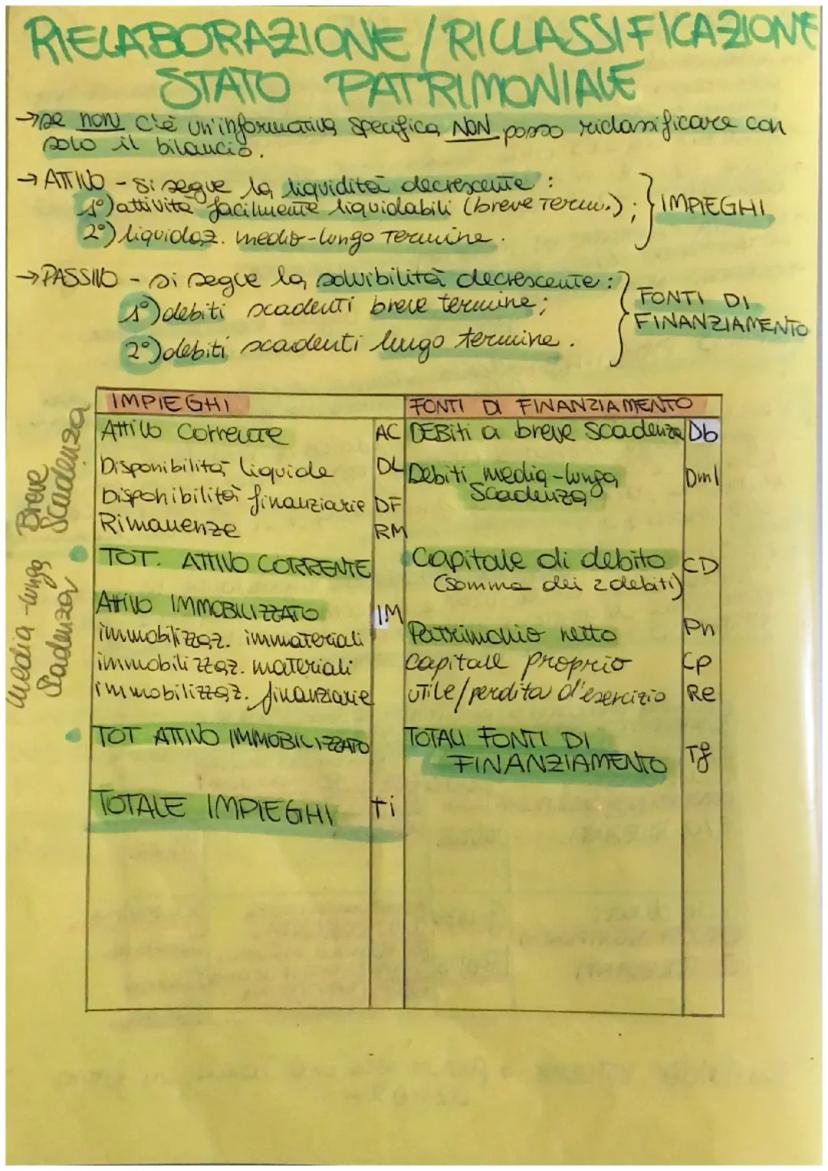 RIELABORAZIONE/RICLASSIFICAZIONE
STATO PATRIMONIALE
→ se non c'è un'informativa specifica NON posso riclassificare con
solo il bilancio.
→ ATTIVO - si segue la liquidità decrescente:
1°) attività facilmente liquidabili (breve term.);
2°) liquidaz. medio-lungo termine.
IMPIEGHI
→ PASSIVO - si segue la solvibilità decrescente:
1°) debiti scadenti breve termine;
2°) debiti scadenti lungo termine.
FONTI DI
FINANZIAMENTO
Breve
Scadenza
media-lunga
Scadenza
IMPIEGHI
Attivo corrente AC
Disponibilità liquide DL
Disponibilità finanziarie DF
Rimanenze RM
TOT. ATTIVO CORRENTE
Attivo IMMOBILIZZATO IM
immobilizzaz. immateriali
immobilizzaz. materiali
immobilizzaz. finanziarie
TOT ATTIVO IMMOBILIZZATO
TOTALE IMPIEGHI Ti
FONTI DI FINANZIAMENTO
DEBiti a breve scadenza Db
Debiti media-lunga Dml
scadenza
Capitale di debito CD
(somma dei 2 debiti)
Patrimonio netto Pn
capitale proprio Cp
UTile/perdita d'esercizio Re
TOTALI FONTI DI
FINANZIAMENTO Tf